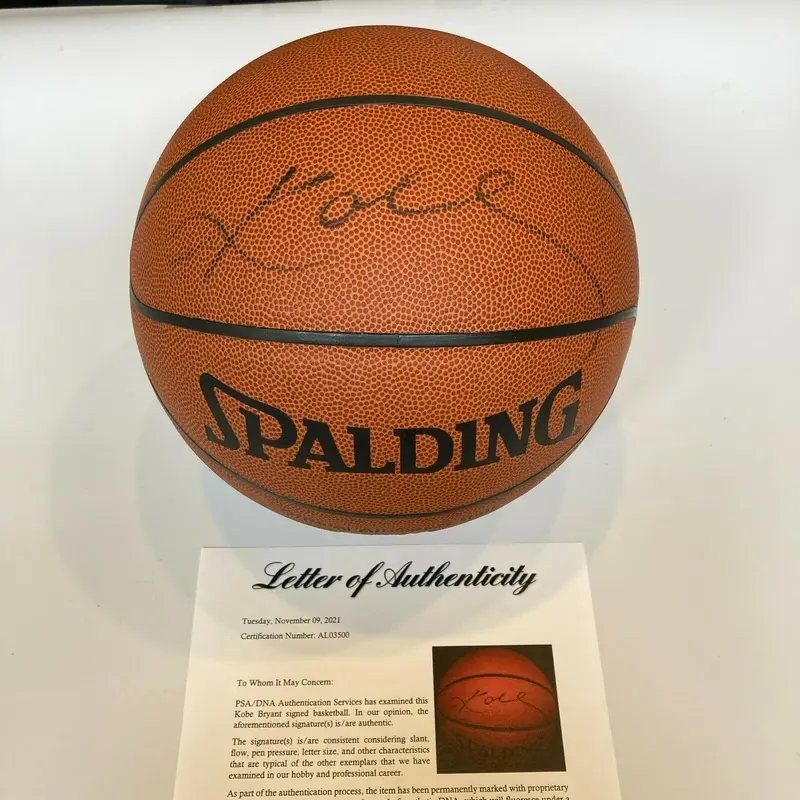 Kobe
SPALDING
Letter of Authenticity
Tuesday, November 09, 2021
Certification Number: AL03500
To Whom It May Concern:
PSA/DNA Authentication Services has examined this
Kobe Bryant signed basketball. In our opinion, the
aforementioned signature(s) is/are authentic.
The signature(s) is/are consistent considering slant,
flow, pen pressure, letter size, and other characteristics
that are typical of the other exemplars that we have
examined in our hobby and professional career.
As part of the authentication process, the item has been permanently marked with proprietary
DNA, which will fluoresce under a
Kobe
SPALDING